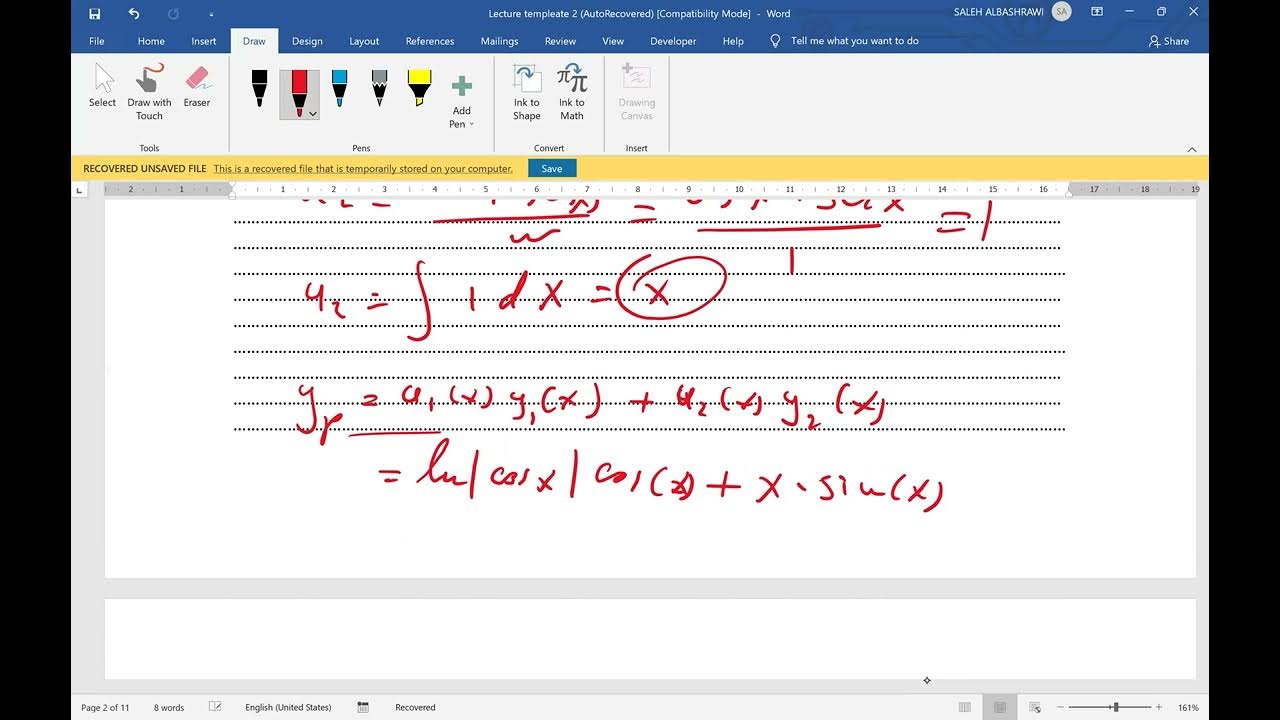 Lecture templeate 2 (AutoRecovered) [Compatibility Mode] - Word
SALEH ALBASHRAWI SA
File Home Insert Draw Design Layout References Mailings Review View Developer Help Tell me what you want to do Share
Select Draw with Touch Eraser Add Pen Ink to Shape Ink to Math Drawing Canvas
Tools Pens Convert Insert
RECOVERED UNSAVED FILE This is a recovered file that is temporarily stored on your computer. Save
2 1 1 2 3 4 5 6 7 8 9 10 11 12 13 14 15 16 17 18 19
= 1
w 1
u₂ = ∫ 1 dx = x
yₚ = u₁(x) y₁(x) + u₂(x) y₂(x)
= ln|cosx| cos(x) + x · sin(x)
Page 2 of 11 8 words English (United States) Recovered 161%